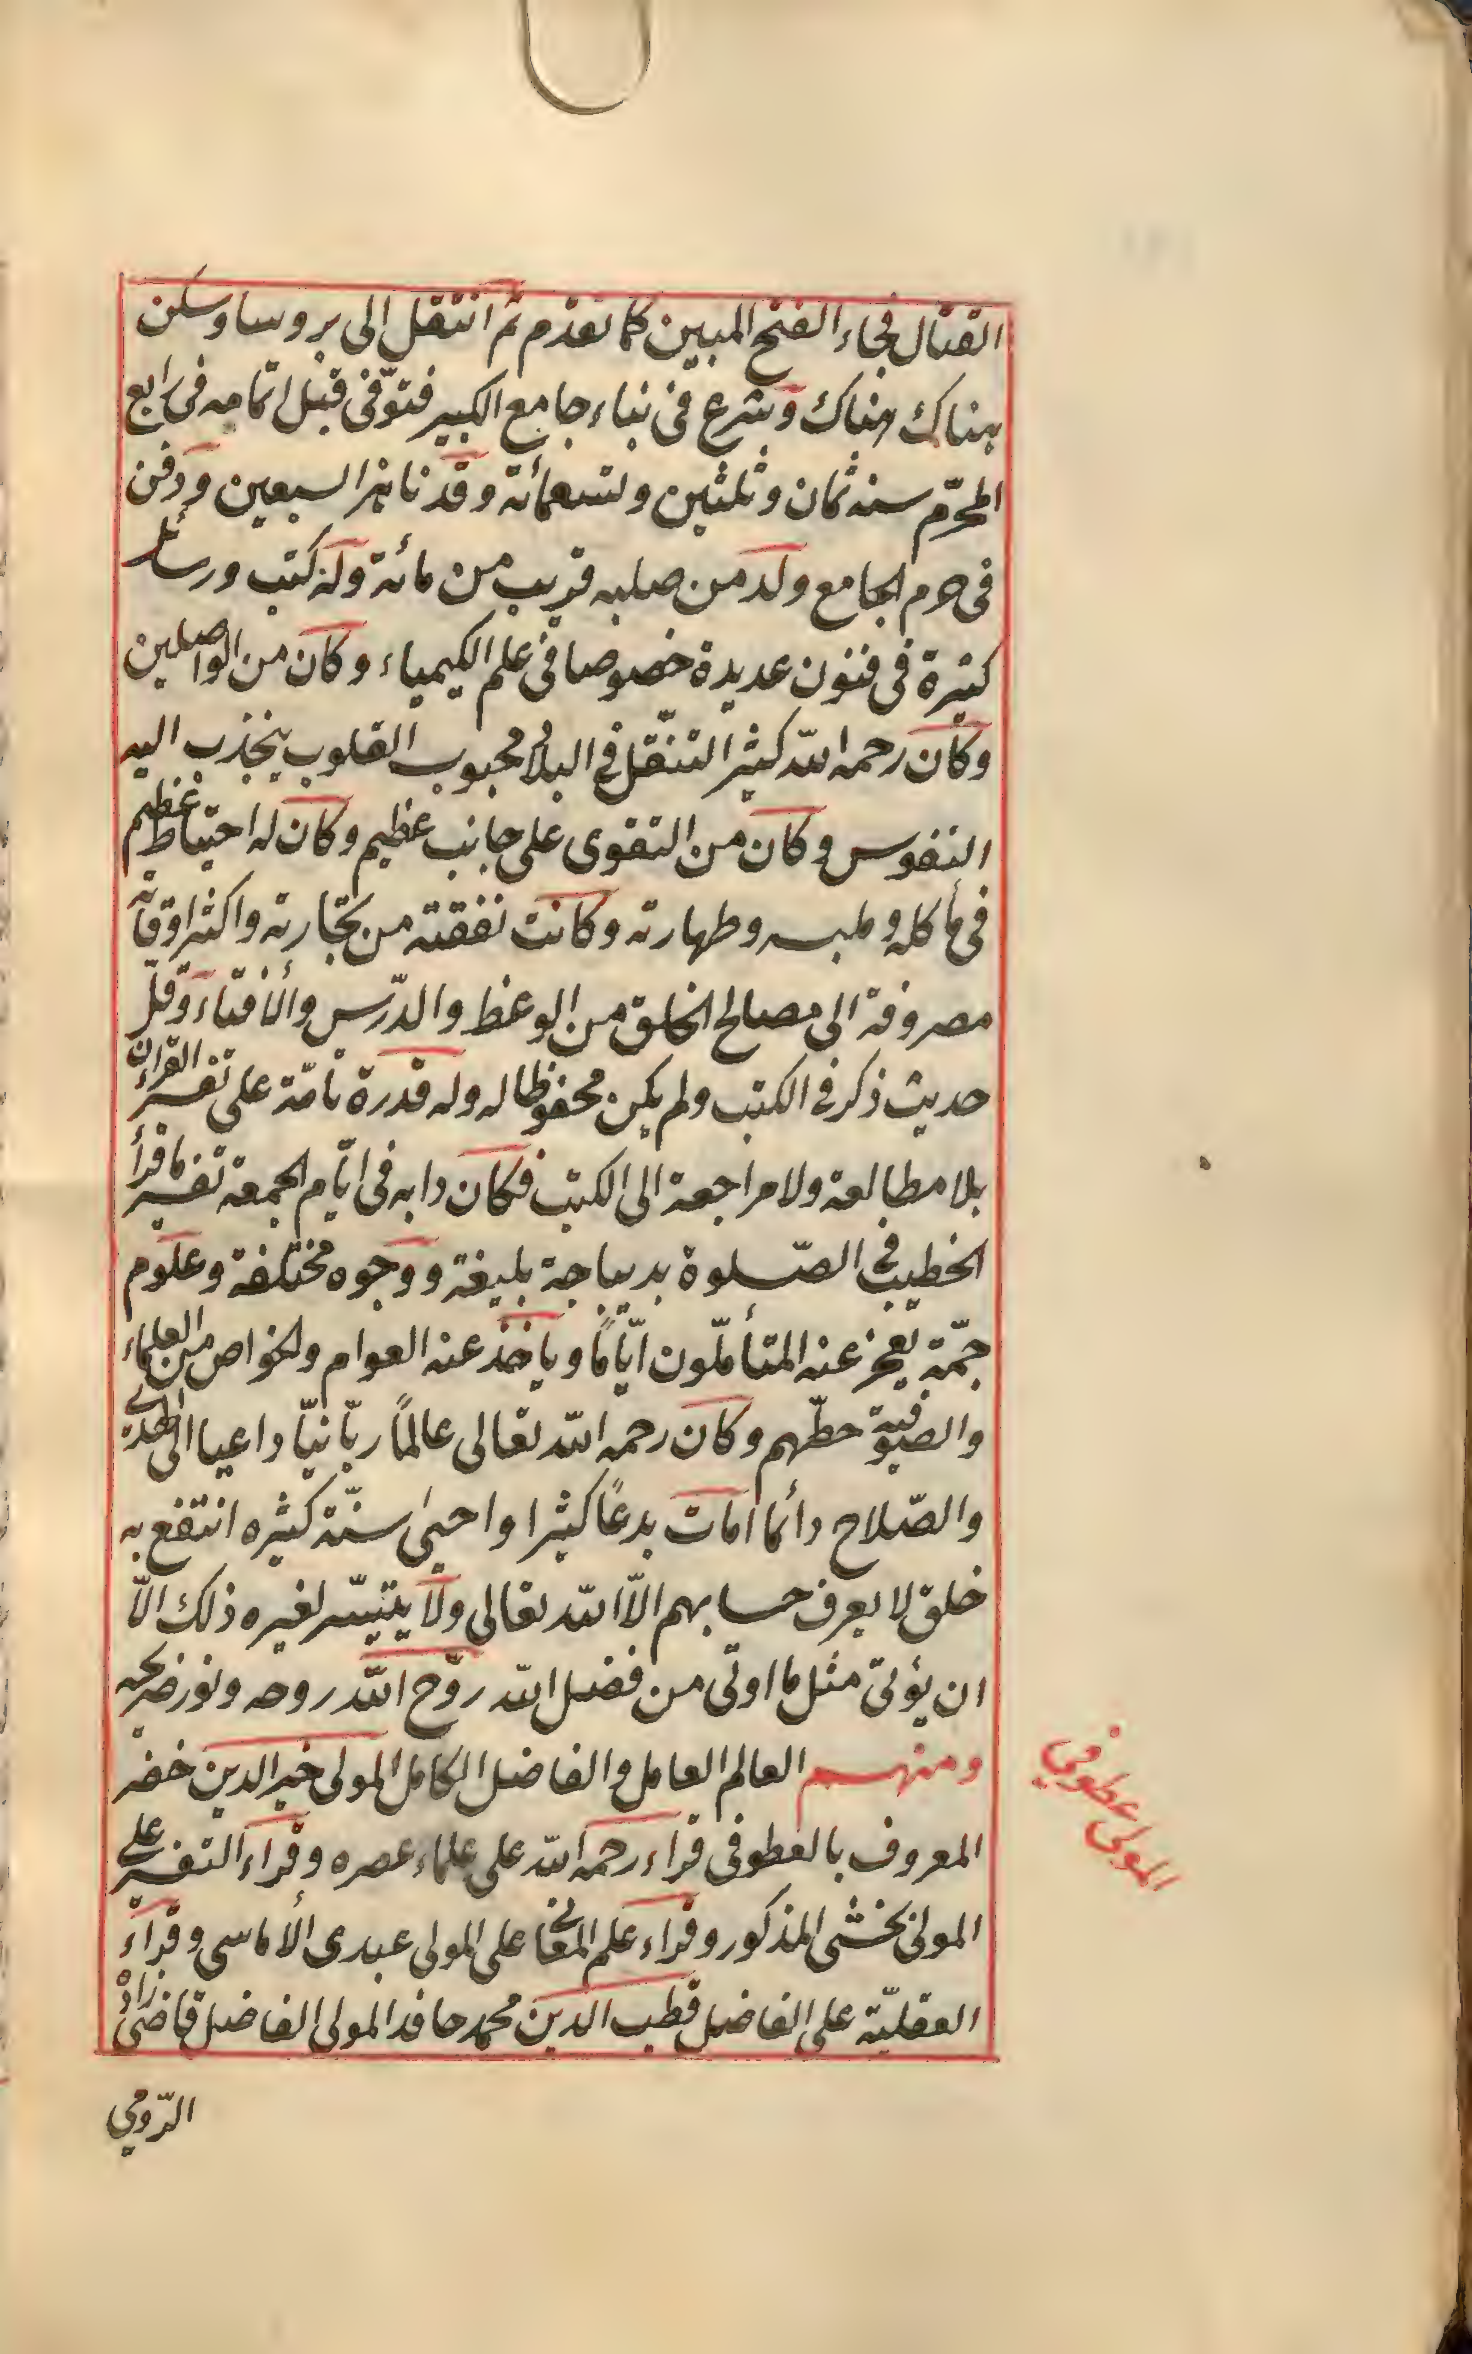 القتال فجاء الفتح المبين كما تقدم ثم انتقل الى بروسا وسكن
هناك هناك وشرع فى بناء جامع الكبير فتوّفى قبل اتمامه فى رابع
المحرّم سنه ثمان وثلثين وتسعمائة وقد ناهز السبعين ودفن
فى حرم الجامع ولد من صلبه قريب من مائة وله كتب ورسائل
كثيرة فى فنون عديدة خصوصا فى علم الكيمياء وكان من الواصلين
وكان رحمه الله كثير التنقّل فى البلاد محبوب القلوب ينجذب اليه
النفوس وكان من التقوى على جانب عظيم وكان له احتياط عظيم
فى مأكله وملبسه وطهارته وكانت نفقته من تجارته واكثر اوقاته
مصروفة الى مصالح الخلق من الوعظ والدّرس والأفتاء وقلّ
حديث ذكر فى الكتب ولم يكن محفوظا له وله قدرة تامّة على تفسير القرأن
بلا مطالعة ولا مراجعة الى الكتب فكان دابه فى ايّام الجمعة تفسير ما قرأ
الخطيب فى الصّلوة بديباجة بليغة ووجوه مختلفة وعلوم
جمّة يعجز عنه المتأملّون ايّامًا ويأخذ عنه العوام والخواص من العلماء
والصوفية حظّهم وكان رحمه الله تعالى عالمًا ربّانيّا داعيا الى الهدى
والصّلاح دائما امات بدعًا كثيرا واحيى سنّة كثيره انتفع به
خلق لا يعرف حسابهم الاّ الله تعالى ولا يتيسّر لغيره ذلك الاّ
ان يؤتى مثل ما اوتى من فضل الله روّح الله روحه ونور ضريحه
ومنهم العالم العامل والفاضل الكامل المولى خير الدين خضر
المعروف بالعطوفى قراء رحمه الله على علماء عصره وقراء التفسير على
المولى بخشى المذكور وقراء علم المعانى على المولى عبدى الأماسى وقراء
العقليّة على الفاضل قطب الدين محمد حافد المولى الفاضل قاضى زاده
الرّومى
المولى عطوفى